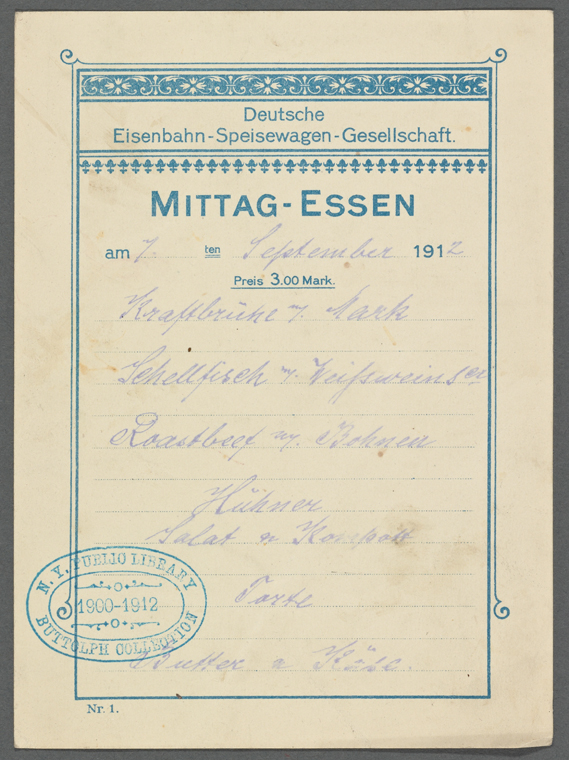 Deutsche
Eisenbahn-Speisewagen-Gesellschaft.
MITTAG-ESSEN
am 7. ten September 1912
Preis 3.00 Mark.
Kraftbrühe m. Mark
Schellfisch m. Weißweins
Roastbeef m. Bohnen
Hühner
Salat u Kompott
Torte
Butter u Käse.
N. Y. PUBLIC LIBRARY
1900-1912
BUTTOLPH COLLECTION
Nr. 1.